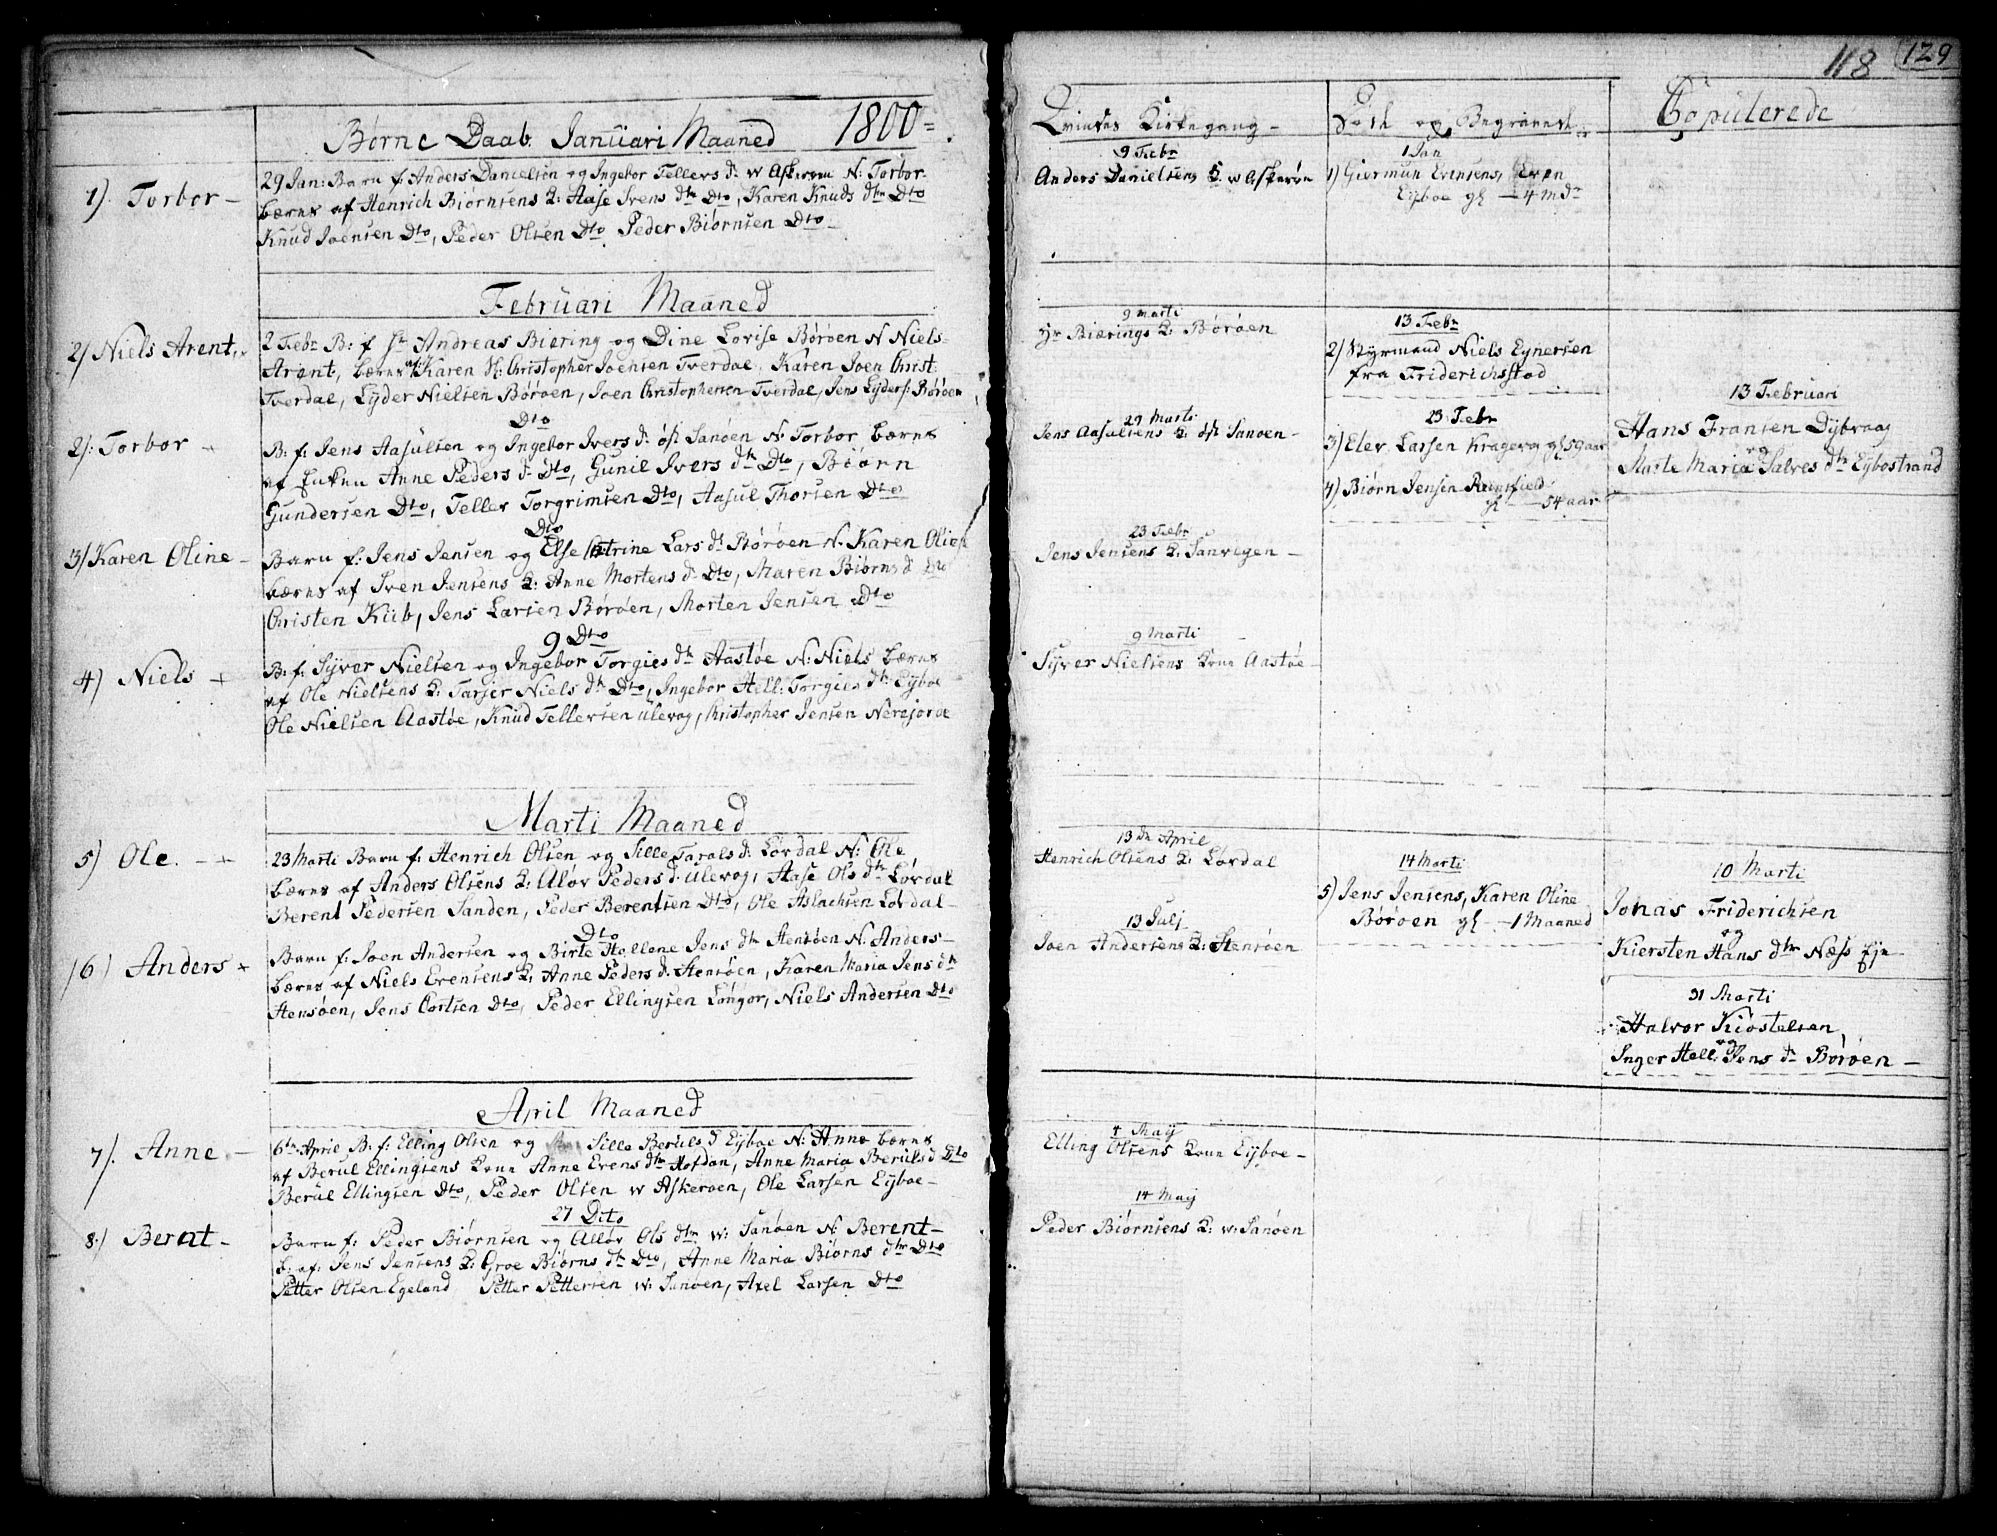 Børne Daab. Januari Maaned 1800=
1). Torbor –
29 Jan: Barn f: Anders Danielsen og Ingebor Tellers d: w Askerøen N: Torbor
bæres af Henrich Biørnsens Q: Aase Ivens dtr Dto, Karen Knuds dtr Dto
Knud Joensen Dto, Peder Olsen Dto Peder Biørnsen Dto
Februari Maaned
2/ Niels Arent,
2 Febr B: f Hr Andreas Biering og Dine Lovise Børøen N Niels
Arent, bæres af Karen H: Christopher Joensen Tverdal, Karen Joen Christ:
Tverdal, Lyder Nielsen Børøen, Joen Christophersen Tverdal, Jens Lyders: Børøen
2/: Torbor –
Dto
B: f: Jens Aasulsen og Ingebor Ivers d: øst Sanøen N: Torbor bæres
af Enken Anne Peders d: Dto, Gunil Ivers dtr Dto, Biørn
Gundersen Dto, Tellef Torgrimsen Dto, Aasul Thorsen Dto
3/ Karen Oline –
Dto
Barn f: Jens Jensen og Else Catrine Lars dr Børøen N: Karen Oline
bæres af Sven Jensens Q: Anne Mortens d: Dto, Maren Biørns d Dto
Christen Kiib, Jens Larsen Børøen, Morten Jensen Dto
4) Niels +
9 Dto
B: f: Syver Nielsen og Ingebor Torgies dtr Aastøe N: Niels bæres
af Ole Nielsens Q: Tarjer Niels dtr Dto, Ingebor Hell: Torgies dtr Eyboe
Ole Nielsen Aastøe, Knud Tellefsen Ulevog, Christopher Jensen
Marti Maaned
5) Ole. – +
23 Marti Barn f: Henrich Olsen og Sille Tarals d: Lørdal N: Ole
bæres af Anders Olsens Q: Aløv Peders d: Ulevog, Aase Ols dtr Lørdal
Berent Pedersen Sanden, Peder Berentsen Dto, Ole Aslachsen Lørdal –
6) Anders +
Dto
Barn f: Joen Andersen og Birte Hellene Jens dtr Stensøen N: Anders –
bæres af Niels Evensens Q: Anne Peders d. Stensøen, Karen Maria Jens dtr
Stensøen, Jens Cortsen Dto, Peder Ellingsen Longor, Niels Andersen Dto
April Maaned
7/. Anne –
6te April B: f: Elling Olsen og Sille Beruls d Eyboe N: Anne bæres
af Berul Ellingsens Kone Anne Evens dtr Hofdan, Anne Maria Beruls d Dto
Berul Ellingsen Dto, Peder Olsen w Askerøen, Ole Larsen Eyboe –
8.) Berent –
27 Dito
Barn f: Peder Biørnsen og Alløv Ols dtr w: Sanøen N: Berent –
b: af: Jens Jensens Q: Groe Biørns dtr Dto, Anne Maria Biørns dtr Dto
Petter Olsen Egeland Petter Pettersen w: Sanøen, Axel Larsen Dto
118 129
Qvindes Kirkegang –
9 Febr
Anders Danielsens Q w Askerøn
9 Marti
Hr Biærings Q: Børøen
29 Marti
Jens Aasulsens Q: øst Sanøen –
23 Febr
Jens Jensens Q: Sanvigen –
9 Marti
Syver Nielsens Kone Aastøe –
13de April
Henrich Olsens Q: Lørdal
13 Julj
Joen Andersens Q: Stensøen
4 Maij
Elling Olsens Kone Eyboe –
14 Maij
Peder Biørnsens Q: w: Sanøen
Døde og Begravede
1 Jan
1) Giermun Evensens, Even
Eyboe gl – 4 Mdr
13 Febr
2) Styrmand Niels Eynersen
fra Friderichsstad
23 Febr
3) Elev Larsen Kragerøe gl 59 aar
4) Biørn Jensen
gl – 54 aar
14 Marti
5) Jens Jensens, Karen Oline
Børøen gl – 1 Maaned
Copulerede
13 Februari
Hans Fransen Dybvaag
og
Marte Maria Salves dtr Eybostrand
10 Marti
Jonas Friderichsen
og
Kiersten Hans dtr Næss Eje
31 Marti
Halvor Kiostelsen
og
Inger Hell. Jens dr Børøen –